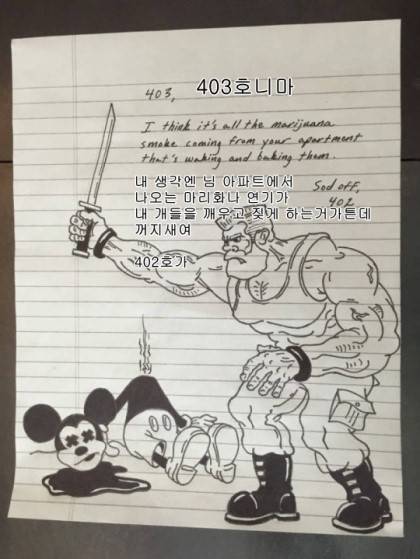 403, 403호니마
I think it's all the marijuana
smoke coming from your apartment
that's waking and baking them.
내 생각엔 님 아파트에서
나오는 마리화나 연기가
내 개들을 깨우고 짖게 하는거가튼데
꺼지새여
Sod off,
402
402호가